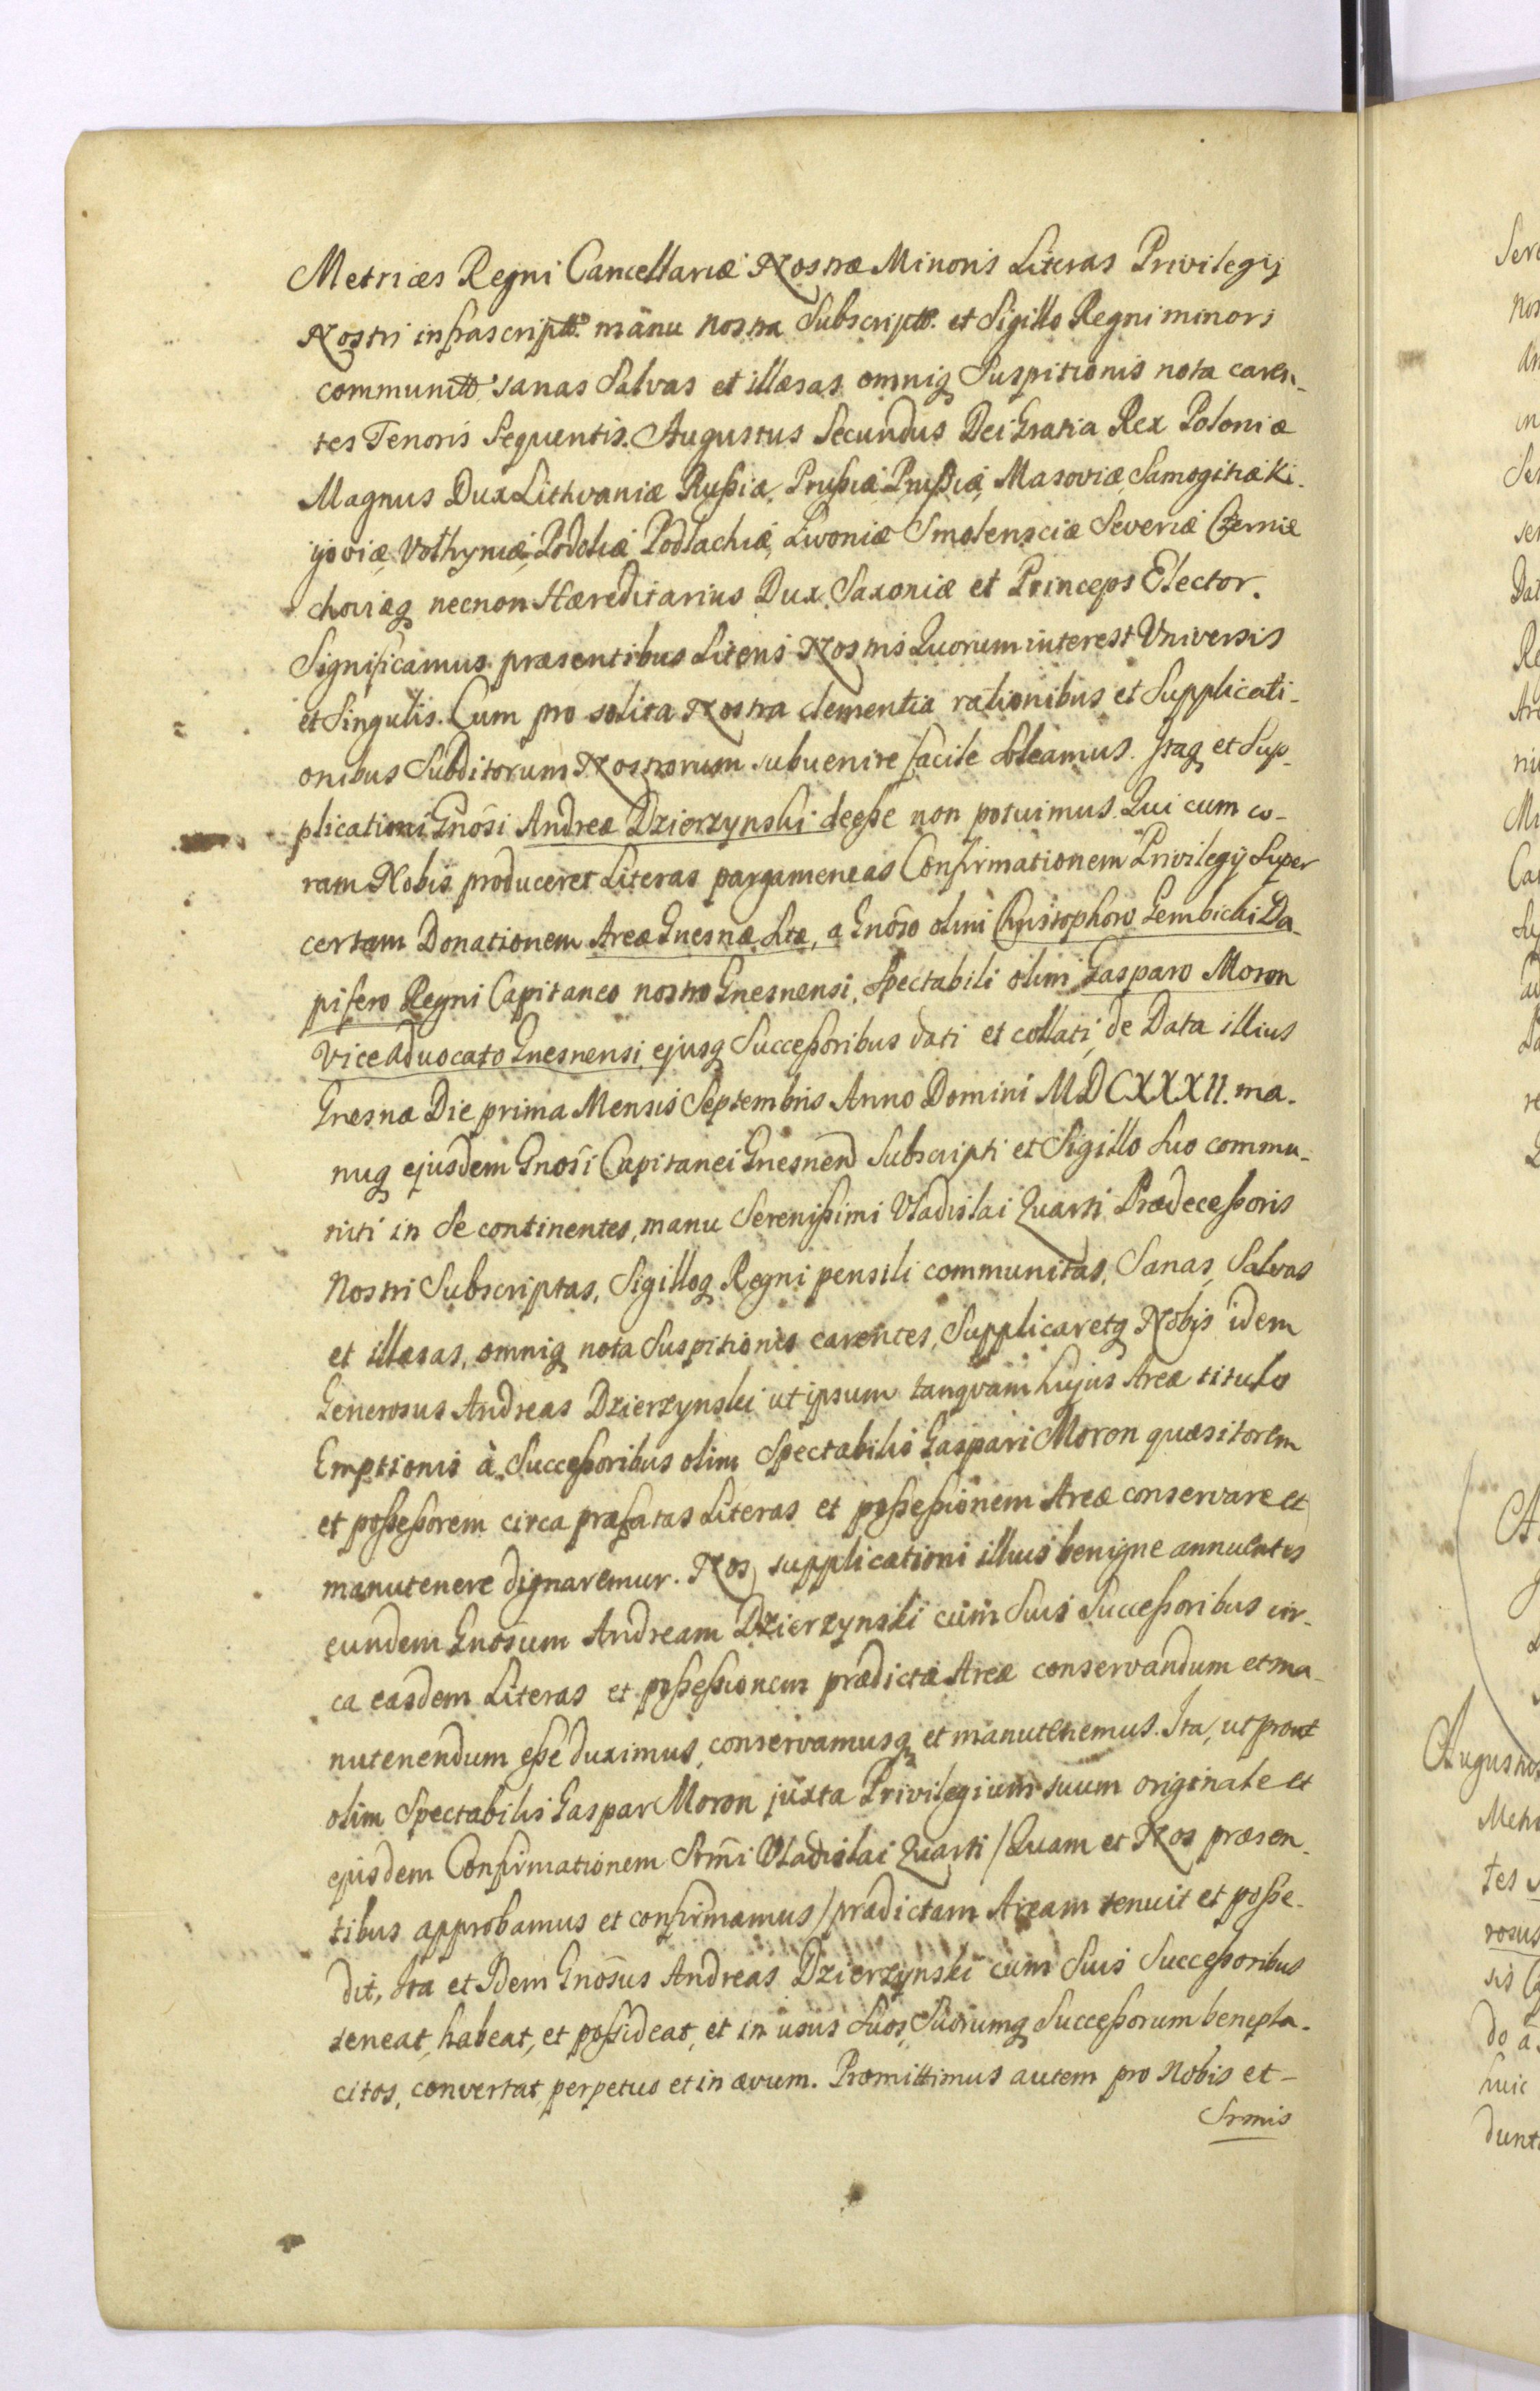 Metrices Regni Cancellariæ Nostræ Minoris Literas Privilegij
Nostri infrascriptt. manu nostra Subscriptt. et Sigillo Regni minori
communitt. sanas salvas et illæsas omniq suspitionis nota caren-
tes Tenoris Sequentis. Augustus Secundus Dei Gratia Rex Poloniæ
Magnus Dux Lithvaniæ Rußiæ, Prußiæ Prußiæ, Masoviæ, Samogitiæ Ki-
ijoviæ, Volhyniæ, Podoliæ, Podlachiæ, Livoniæ Smolensciæ Severiæ Czernie
choviæq necnon Hæreditarius Dux Saxoniæ et Princeps Elector.
Significamus præsentibus Literis Nostris Quorum interest Vniversis
et Singulis. Cum pro solita Nostra clementia rationibus et Supplicati-
onibus Subditorum Nostrorum subuenire facile soleamus. Itaq et Sup-
plicationi Gnōsi Andreæ Dzierzynski deeße non potuimus. Qui cum co-
ram Nobis produceret Literas pargameneas Confirmationem Privilegij Super
certam Donationem Areæ Gnesnæ sitæ, a Gnōso olim Christophoro Gembicki Da-
pifero Regni Capitaneo nostro Gnesnensi, Spectabili olim Gasparo Moron
Viceadvocato Gnesnensi, ejusq Succeßoribus dati et collati, de Data illius
Gnesnæ Die prima Mensis Septembris Anno Domini MDCXXXII. ma-
nuq ejusdem Gnosi Capitanei Gnesnen Subscripti et Sigillo suo commu-
niti in se continentes, manu Serenißimi Vladislai Quarti Prædeceßoris
Nostri Subscriptas, Sigilloq Regni pensili communitas, Sanas, Salvas
et illæsas, omniq nota suspitionis carentes, Supplicaretq Nobis idem
Generosus Andreas Dzierzynski ut ipsum tanqvam hujus Areæ titulo
Emptionis à Succeßoribus olim Spectabilis Gaspari Moron quæsitorem
et poßeßorem circa præfatas Literas et poßeßionem Areæ conservare et
manutenere dignaremur. Nos supplicationi illius benigne annuentes
eundem Gnōsum Andream Dzierzynski cum Suis Succeßoribus cir-
ca easdem Literas et poßeßionem prædictæ Areæ conservandum et ma-
nutenendum eße duximus, conservamusq et manutenemus. Ita, ut prout
olim Spectabilis Gaspar Moron juxta Privilegium suum originale et
ejusdem Confirmationem Srm̄i Vladislai Quarti / Quam et Nos præsen-
tibus approbamus et confirmamus / prædictam Aream tenuit et poße-
dit, Ita et Idem Gnōsus Andreas Dzierzynski cum Suis Succeßoribus
teneat, habeat, et poßideat, et in usus suos, Suorumq Succeßorum benepla-
citos, convertat perpetuo et in ævum. Promittimus autem pro Nobis et -
Srmis